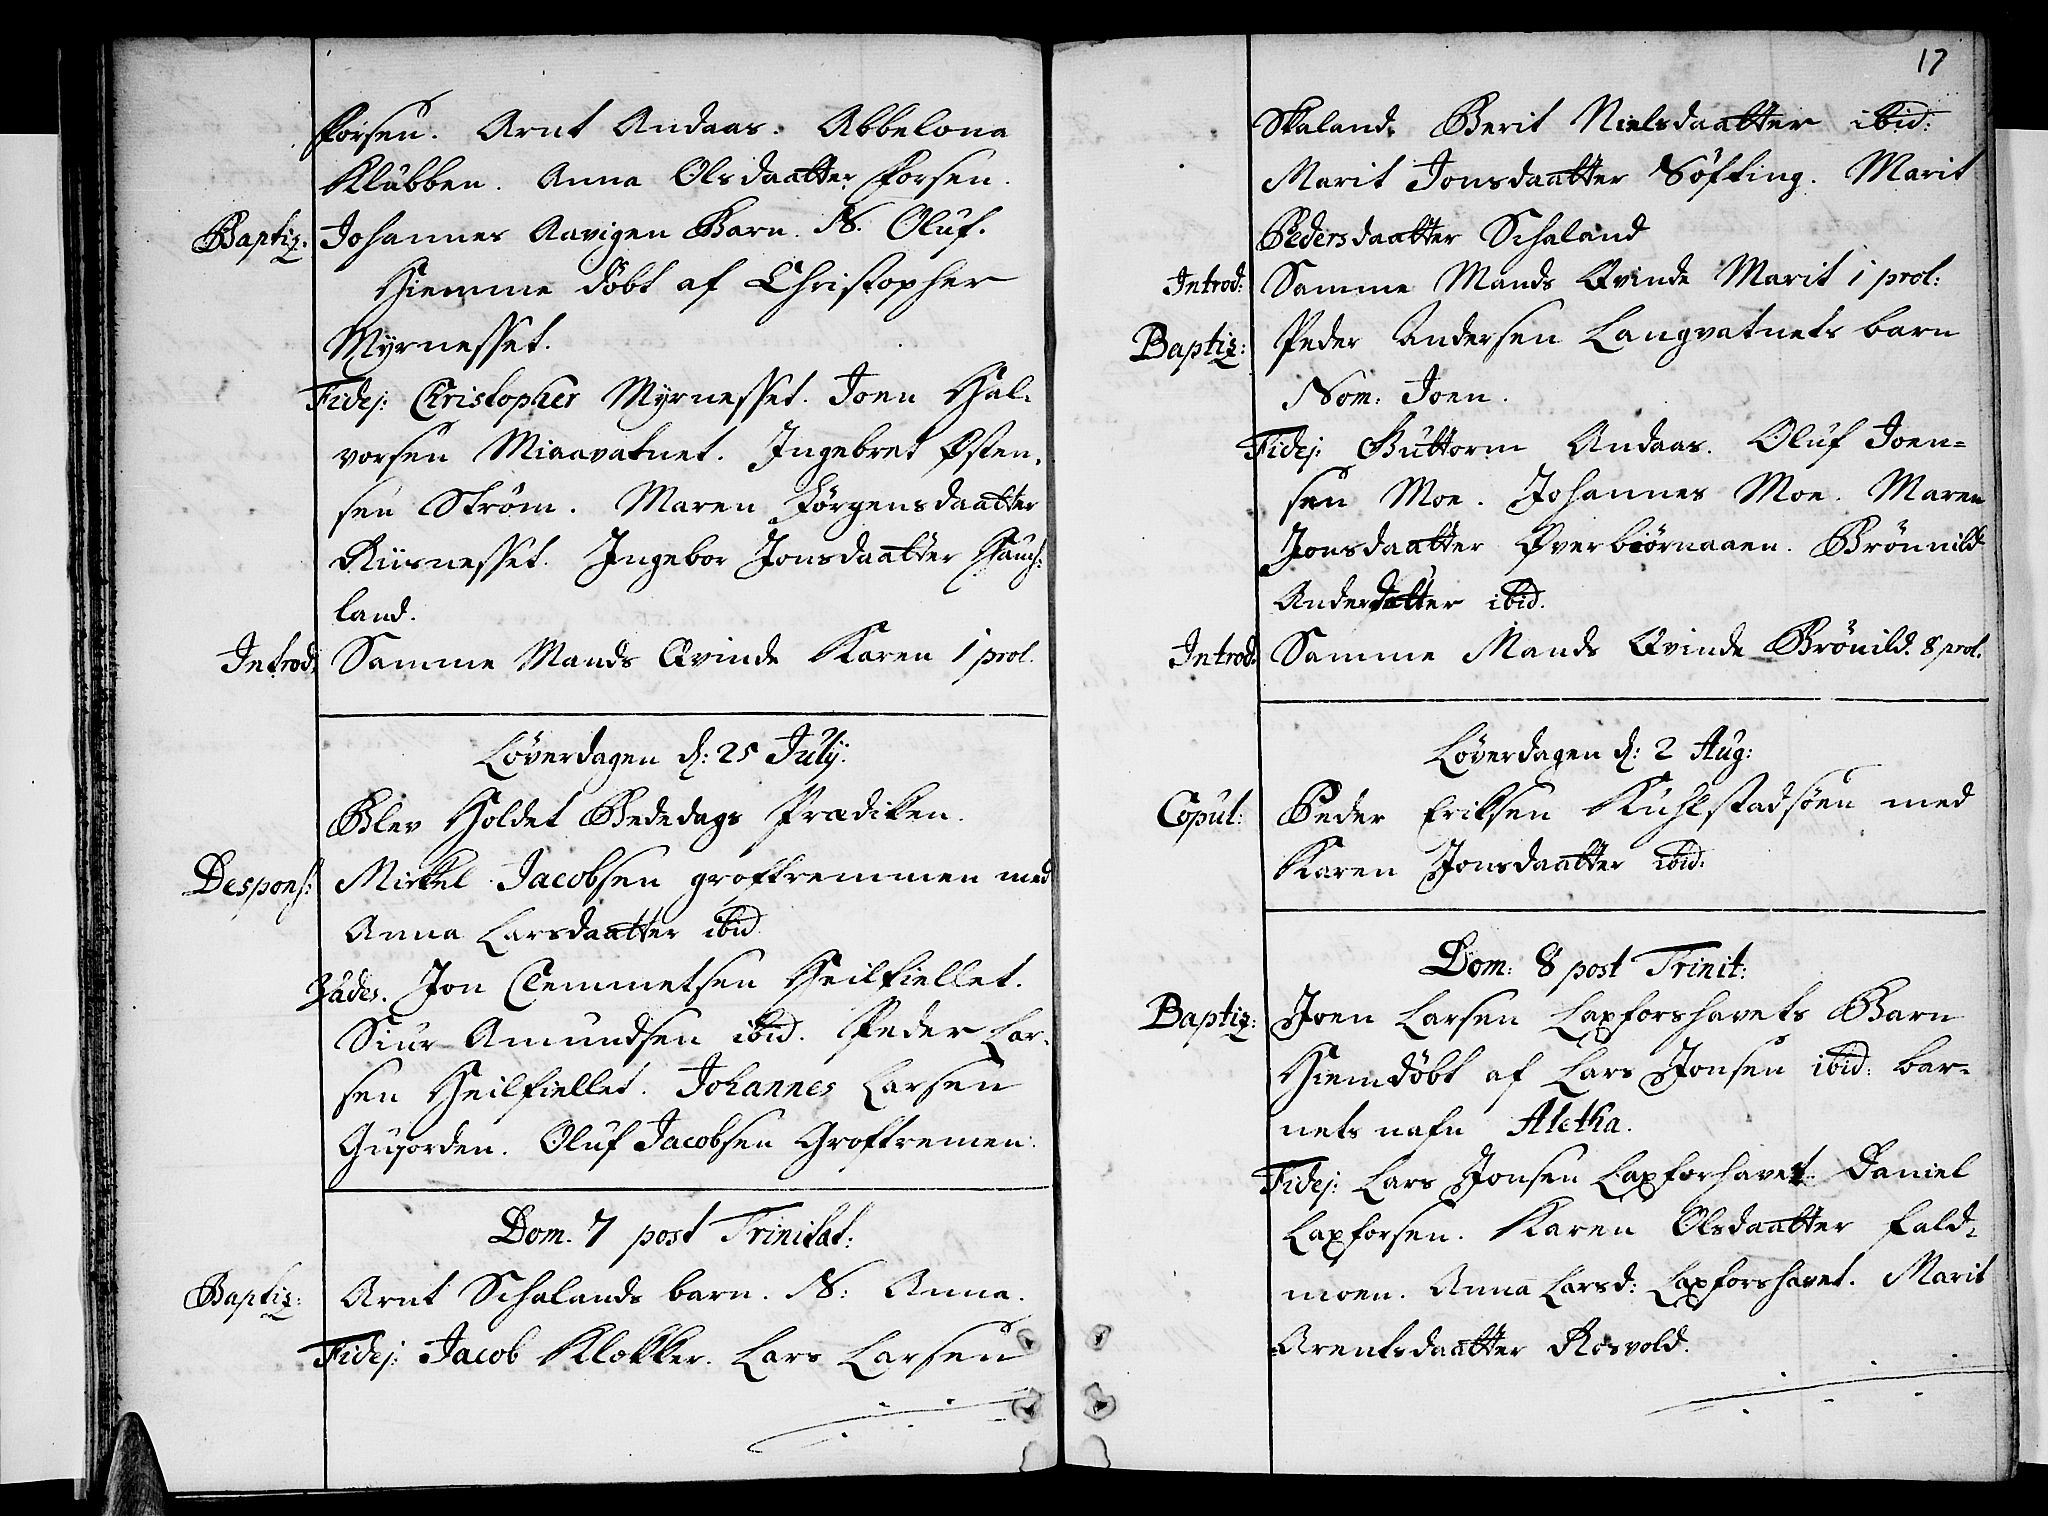 Forsen. Arnt Andaas. Abbelona
Klubben. Anna Olsdaatter Forsen.
Baptiz: Johannes Aavigen Barn. N. Oluf.
Hiemme döbt af Christopher
Myrnesset.
Fidej: Christopher Myrnesset. Joen Hal-
vorsen Miaavatnet. Ingebret Østen-
sen Ström. Maren Jörgensdaatter
Riisnesset. Ingebor Jonsdaatter
land.
Introd: Samme Mands Qvinde Karen 1 prol.
Löverdagen d: 25 Julij.
Blev Holdet Bededags Prædiken.
Despons: Mikkel Jacobsen groftremmen med
Anna Larsdaatter ibid.
Vades. Jon Clemmetsen Heilfiellet.
Siur Amundsen ibid. Peder Lar-
sen Heilfiellet. Johannes Larsen
Oluf Jacobsen Groftremen.
Dom. 7 post Trinitat:
Baptiz: Arnt Schalands barn. N: Anna.
Fidej: Jacob Klokker. Lars Larsen
17
Skaland. Berit Nielsdaatter ibid:
Marit Jonsdaatter Söfting. Marit
Pedersdaatter Schaland
Introd: Samme Mands Qvinde Marit 1 prol:
Baptiz: Peder Andersen Langvatnets barn
Nom: Joen.
Fidej: Guttorm Andaas. Oluf Joen-
sen Moe. Johannes Moe. Maren
Jonsdaatter Øverbiörnaaen. Brönnild
Andersdatter ibid.
Introd: Samme Mands Qvinde Brönild. 8 prol.
Löverdagen d: 2 Aug:
Copul: Peder Eriksen Kuhlstadsöen med
Karen Jonsdaatter ibid:
Dom: 8 post Trinit:
Baptiz: Joen Larsen Laxforshavets Barn
Hiemdöbt af Lars Jonsen ibid: bar-
nets nafn Aletha.
Fidej: Lars Jonsen Laxforhavet. Daniel
Laxforsen. Karen Olsdaatter Fald-
moen. Anna Larsd: Laxforshavet. Marit
Arentsdaatter Rosvold.